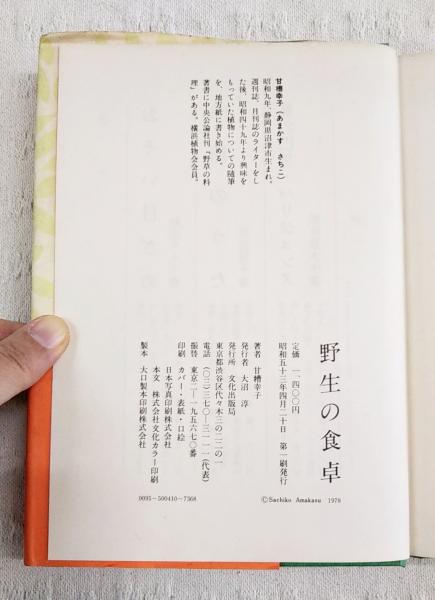 甘糟幸子(あまかす さちこ)
昭和九年、静岡県沼津市生まれ。
週刊誌、月刊誌のライターをし
た後、昭和四十九年より興味を
もっていた植物についての随筆
を、地方紙に書き始める。
著書に中央公論社刊『野草の料
理』がある。横浜植物会会員。
野生の食卓
定価 一、四〇〇円
昭和五十三年四月二十日 第一刷発行
著者 甘糟幸子
発行者 大沼 淳
発行所 文化出版局
東京都渋谷区代々木三の二二の一
電話 (〇三)三七〇―三一一一(代表)
振替 東京二―一九五六七〇番
印刷 カバー・表紙・口絵
日本写真印刷株式会社
本文 株式会社文化カラー印刷
製本 大口製本印刷株式会社
0095-500410-7368
©Sachiko Amakasu 1978